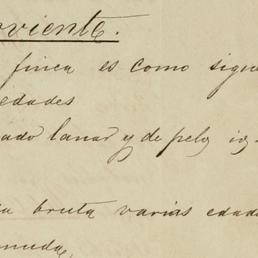 oviente.
finca es como sigue
edades
ado lanar y de pelo ig-
ia bruta varias edade
muda,